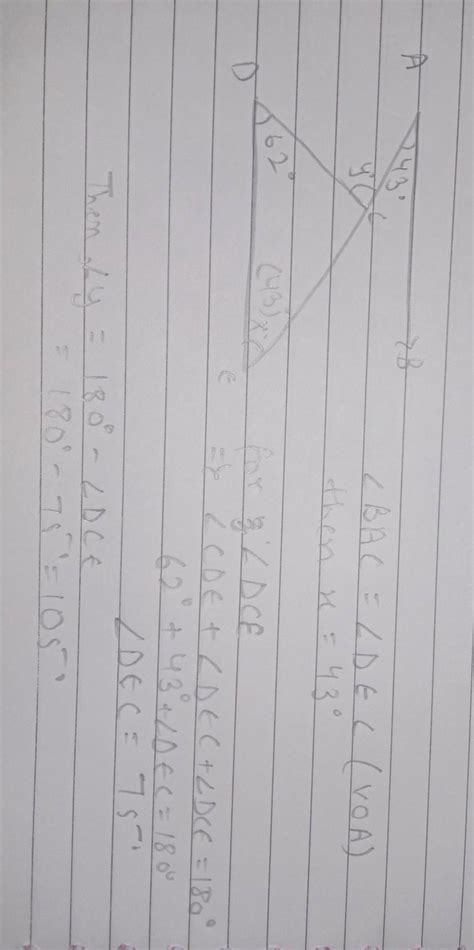 A 43° B
y C
D 62° (43) x° E
∠BAC = ∠DEC (VOA)
then x = 43°
for ∠DCE
∠CDE + ∠DEC + ∠DCE = 180°
62° + 43° + ∠DEC = 180°
∠DEC = 75°
Then ∠y = 180° - ∠DCE
= 180° - 75° = 105°